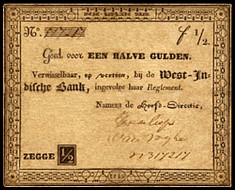 No.
ƒ ½.
Goed voor EEN HALVE GULDEN.
Verwisselbaar, op vertoon, bij de West-In-
dische Bank, ingevolge haar Reglement.
Namens de Hoofd-Directie,
ZEGGE ½